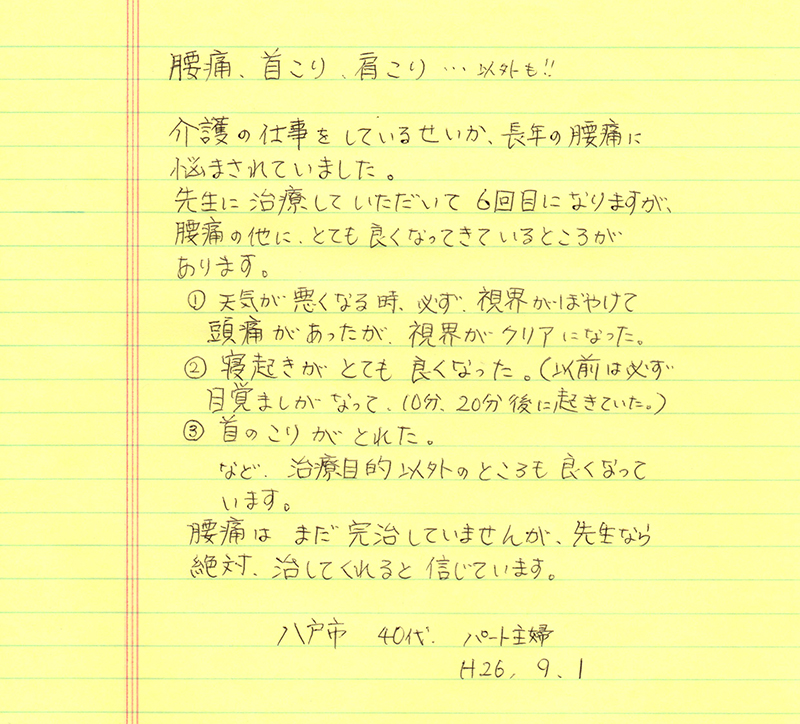 腰痛、首こり、肩こり…以外も!!
介護の仕事をしているせいか、長年の腰痛に
悩まされていました。
先生に治療していただいて6回目になりますが、
腰痛の他に、とても良くなってきているところが
あります。
① 天気が悪くなる時、必ず、視界がぼやけて
頭痛があったが、視界がクリアになった。
② 寝起きがとても良くなった。(以前は必ず
目覚ましがなって、10分、20分後に起きていた。)
③ 首のこりがとれた。
など、治療目的以外のところも良くなって
います。
腰痛はまだ完治していませんが、先生なら
絶対、治してくれると信じています。
八戸市 40代. パート主婦
H26, 9、1